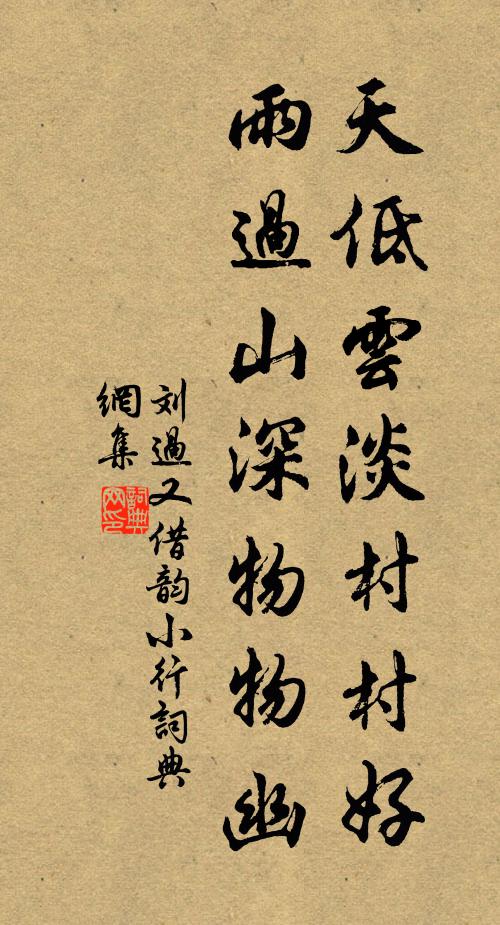 天低雲淡村村好
雨過山深物物幽
刘過又借韵小行詞典
網集
詞典網印